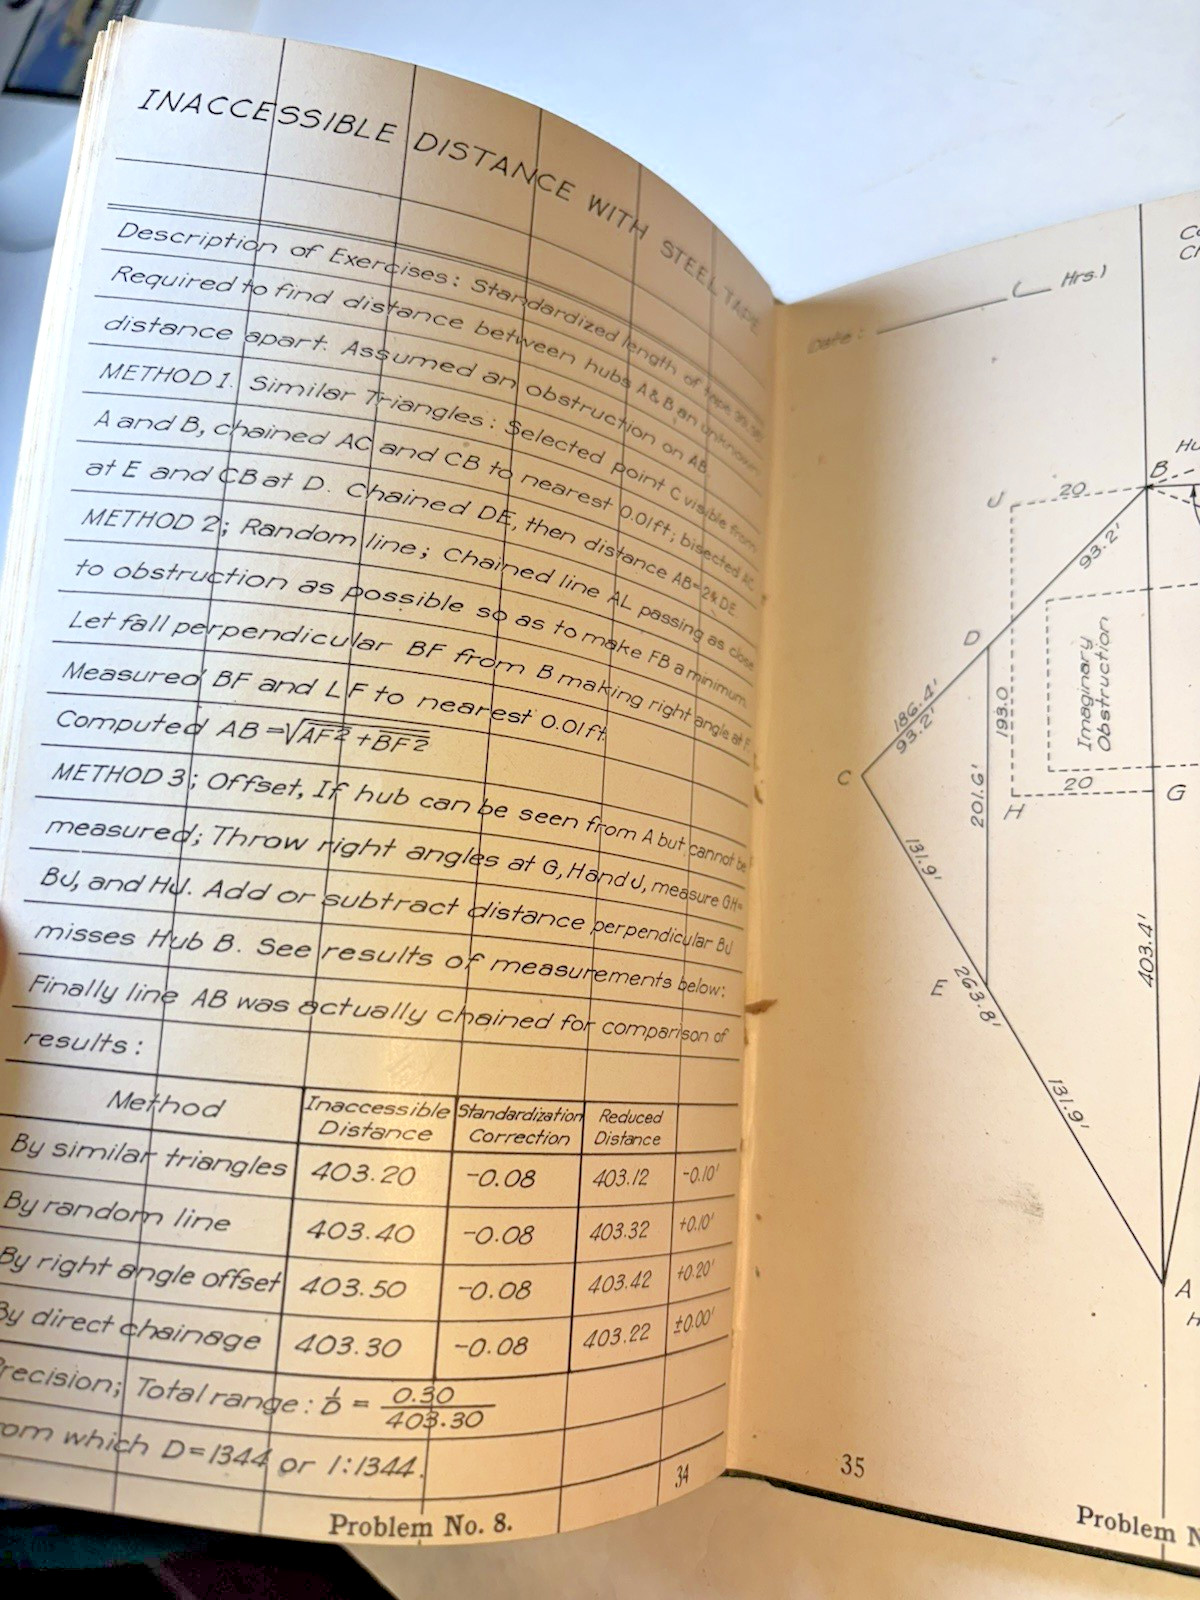 INACCESSIBLE DISTANCE WITH STEEL TAPE
Description of Exercises: Standardized length of tape
Required to find distance between hubs A & B an unknown
distance apart. Assumed an obstruction on AB.
METHOD 1. Similar Triangles: Selected point C visible from
A and B, chained AC and CB to nearest 0.01ft; bisected AC
at E and CB at D. Chained DE, then distance AB=2×DE.
METHOD 2; Random line; Chained line AL passing as close
to obstruction as possible so as to make FB a minimum.
Let fall perpendicular BF from B making right angle at F.
Measured BF and LF to nearest 0.01ft.
Computed AB=√AF2+BF2
METHOD 3; Offset, If hub can be seen from A but cannot be
measured; Throw right angles at G, H and J, measure GH=
BJ, and HJ. Add or subtract distance perpendicular BJ
misses Hub B. See results of measurements below:
Finally line AB was actually chained for comparison of
results:
Method Inaccessible Distance Standardization Correction Reduced Distance
By similar triangles 403.20 -0.08 403.12 -0.10'
By random line 403.40 -0.08 403.32 +0.10'
By right angle offset 403.50 -0.08 403.42 +0.20'
By direct chainage 403.30 -0.08 403.22 ±0.00'
recision; Total range: 1/D = 0.30/403.30
om which D=1344 or 1:1344.
34
Problem No. 8.
Date: ( Hrs.)
Co
Ch
Hu
B
J
20
93.2'
D
193.0
Imaginary
Obstruction
186.4'
93.2'
C
201.6'
H
20
G
131.9'
403.4'
E
263.8'
131.9'
A
H
35
Problem N